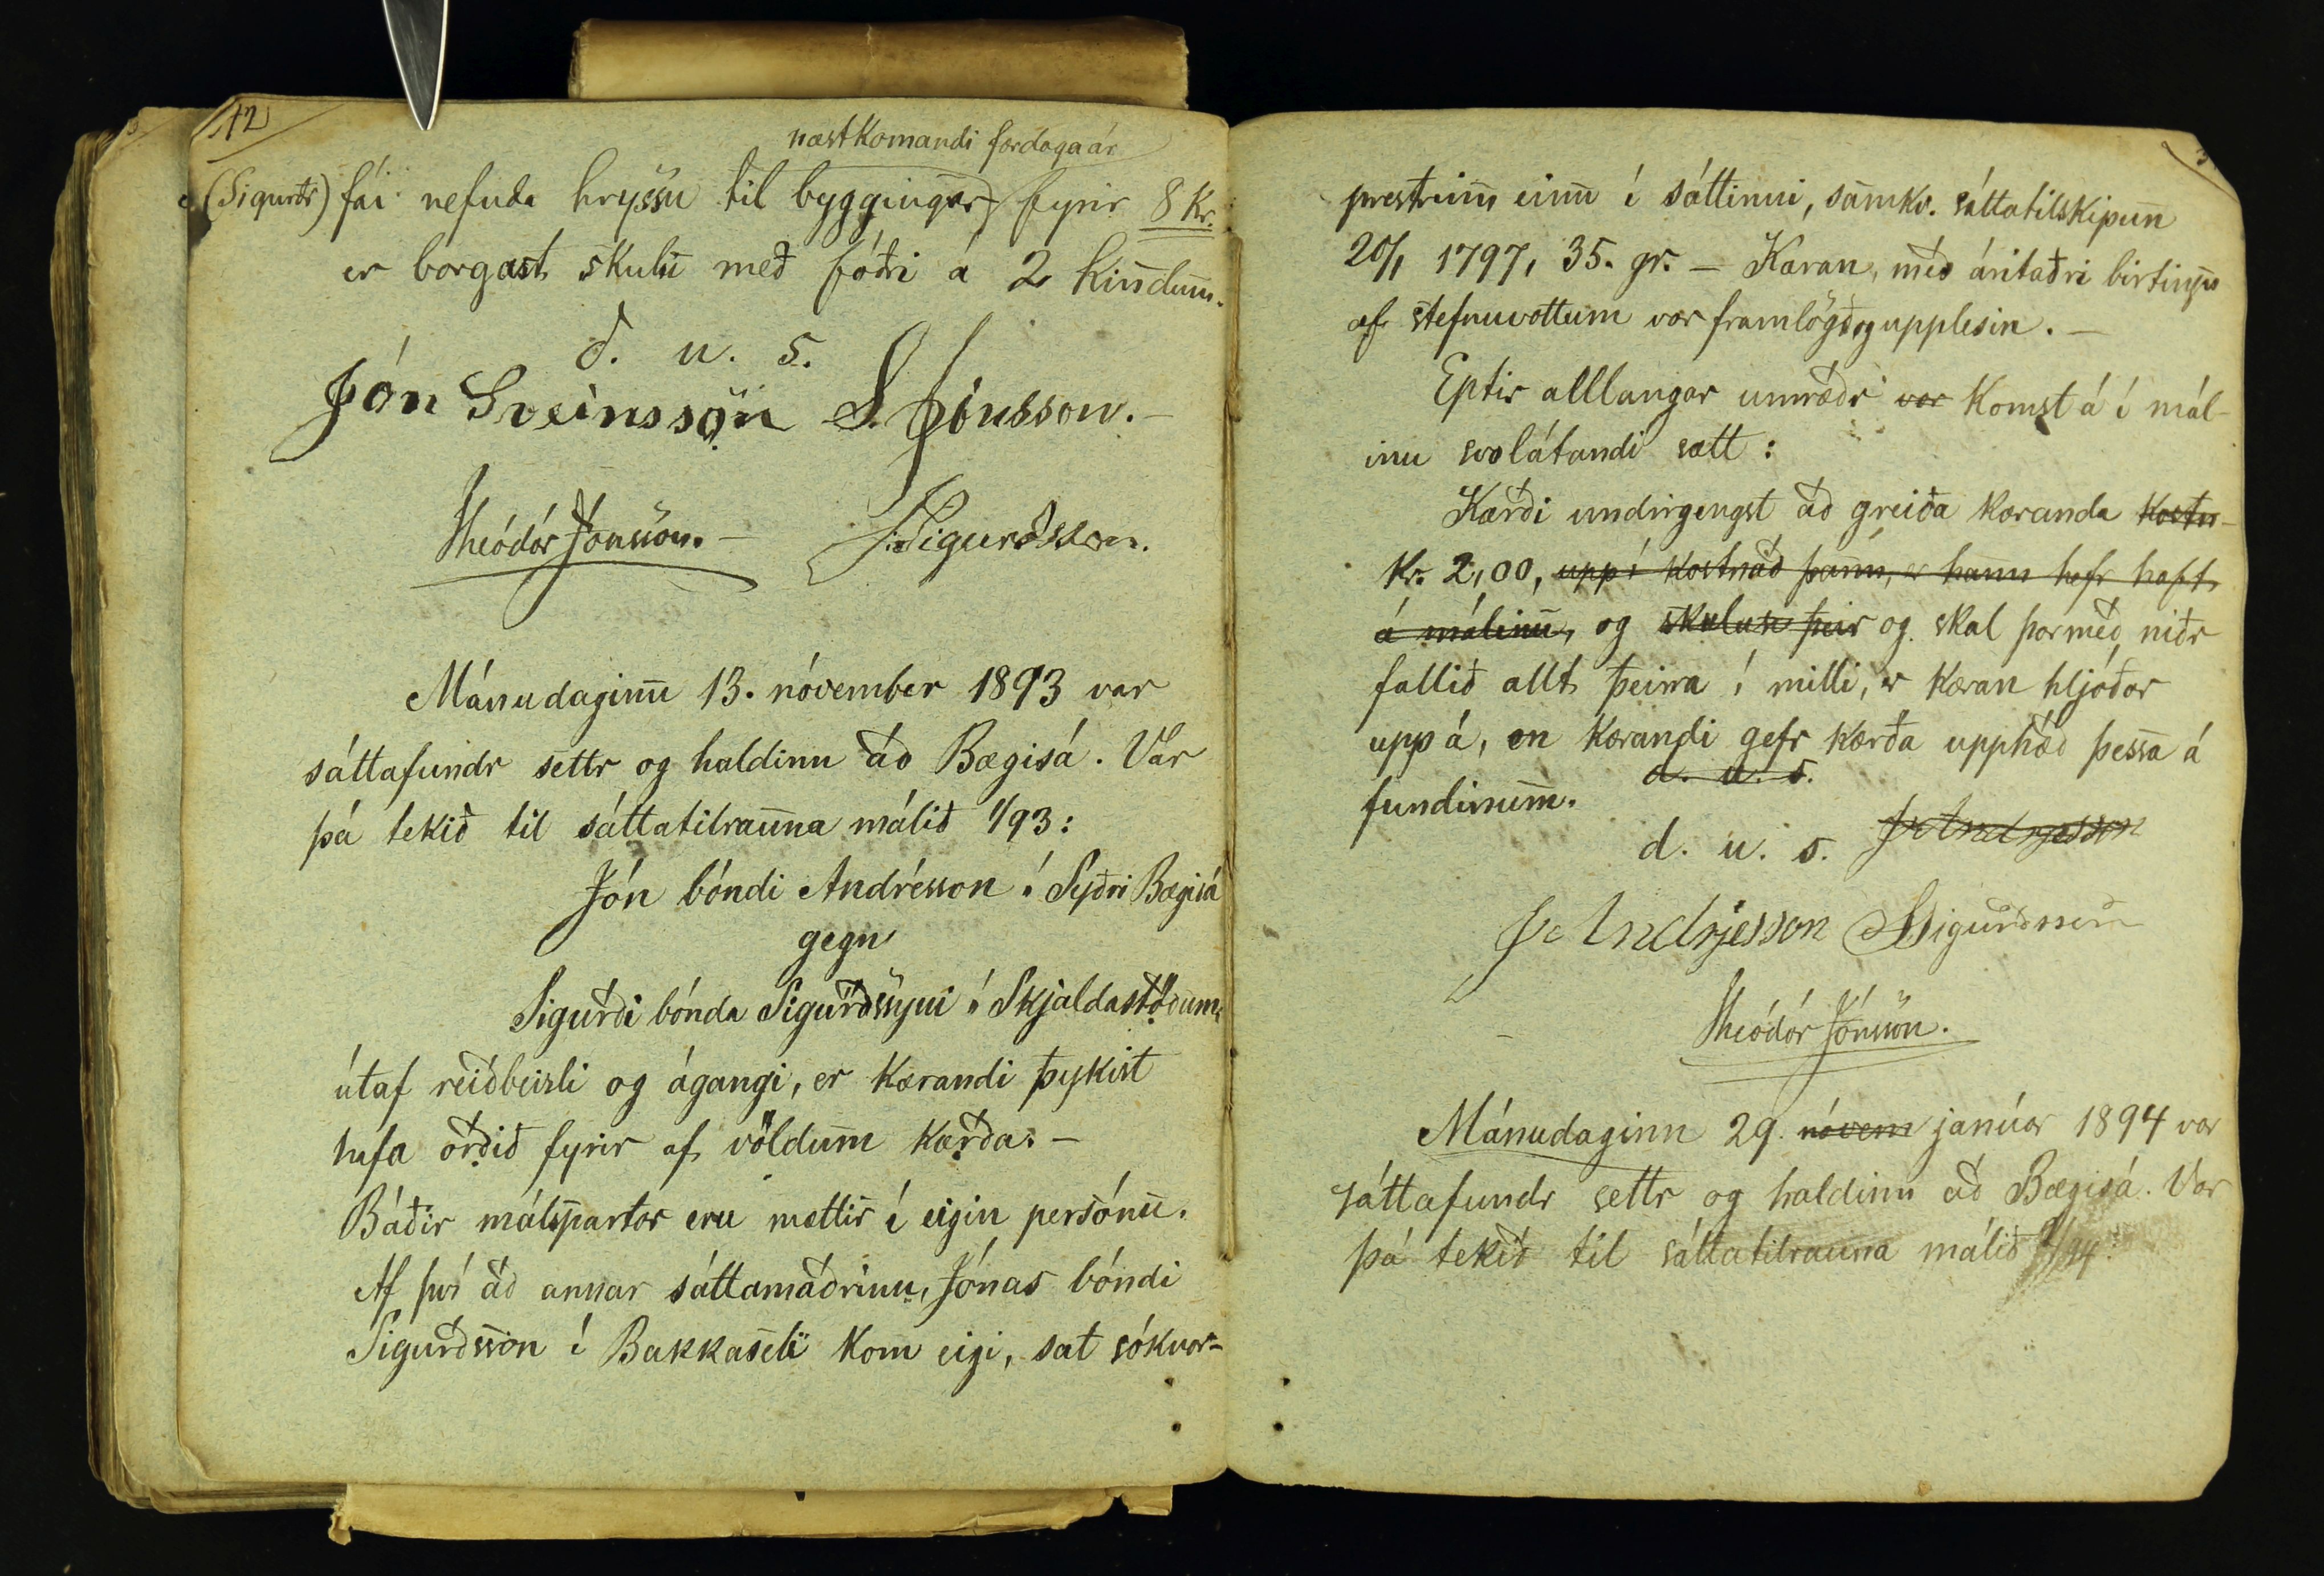 42
næstkomandi fardaga ár
(Sigurðr) fái nefnda hryssu til byggingar fyrir 8 kr.
er borgast skulu með fóðri á 2 kindum.
d. u. s.
Jón Sveinsson S. Jónsson.
Theódór Jónsson. – J. Sigurðsson.
Mánudaginn 13. nóvember 1893 var
sáttafundr settr og haldinn að Bægisá. Var
þá tekið til sáttatilrauna málið 1/93:
Jón bóndi Andrésson á Syðri Bægisá
gegn
Sigurði bónda Sigurðssyni á Skjaldastöðum,
útaf reiðbeizli og ágangi, er kærandi þykist
hafa orðið fyrir af völdum kærða. –
Báðir málspartar eru mættir í eigin persónu.
Af því að annar sáttamaðrinn, Jónas bóndi
Sigurðsson í Bakkaseli kom eigi, sat sóknar-
prestrinn einn í sáttinni, samkv. sáttatilskipun
20/1 1797, 35. gr. – Kæran, með áritaðri birtingu
af stefnuvottum var framlögð og upplesin. –
Eptir alllangar umræðr var komst á í mál-
inu svolátandi sætt:
Kærði undirgengst að greiða kæranda kostn-
kr. 2,00, uppí kostnað þann, er hann hefr haft
á málinu, og skulu þeir og skal þarmeð niðr
fallið allt þeirra í milli, er kæran hljóðar
upp á, en kærandi gefr kærða upphæð þessa á
fundinum. d. u. s.
d. u. s. Jn Andrjesson
Jn Andrjesson SSigurðsson
Theódór Jónsson.
Mánudaginn 29. nóvem janúar 1894 var
sáttafundr settr og haldinn að Bægisá. Var
þá tekið til sáttatilrauna málið 1/94: